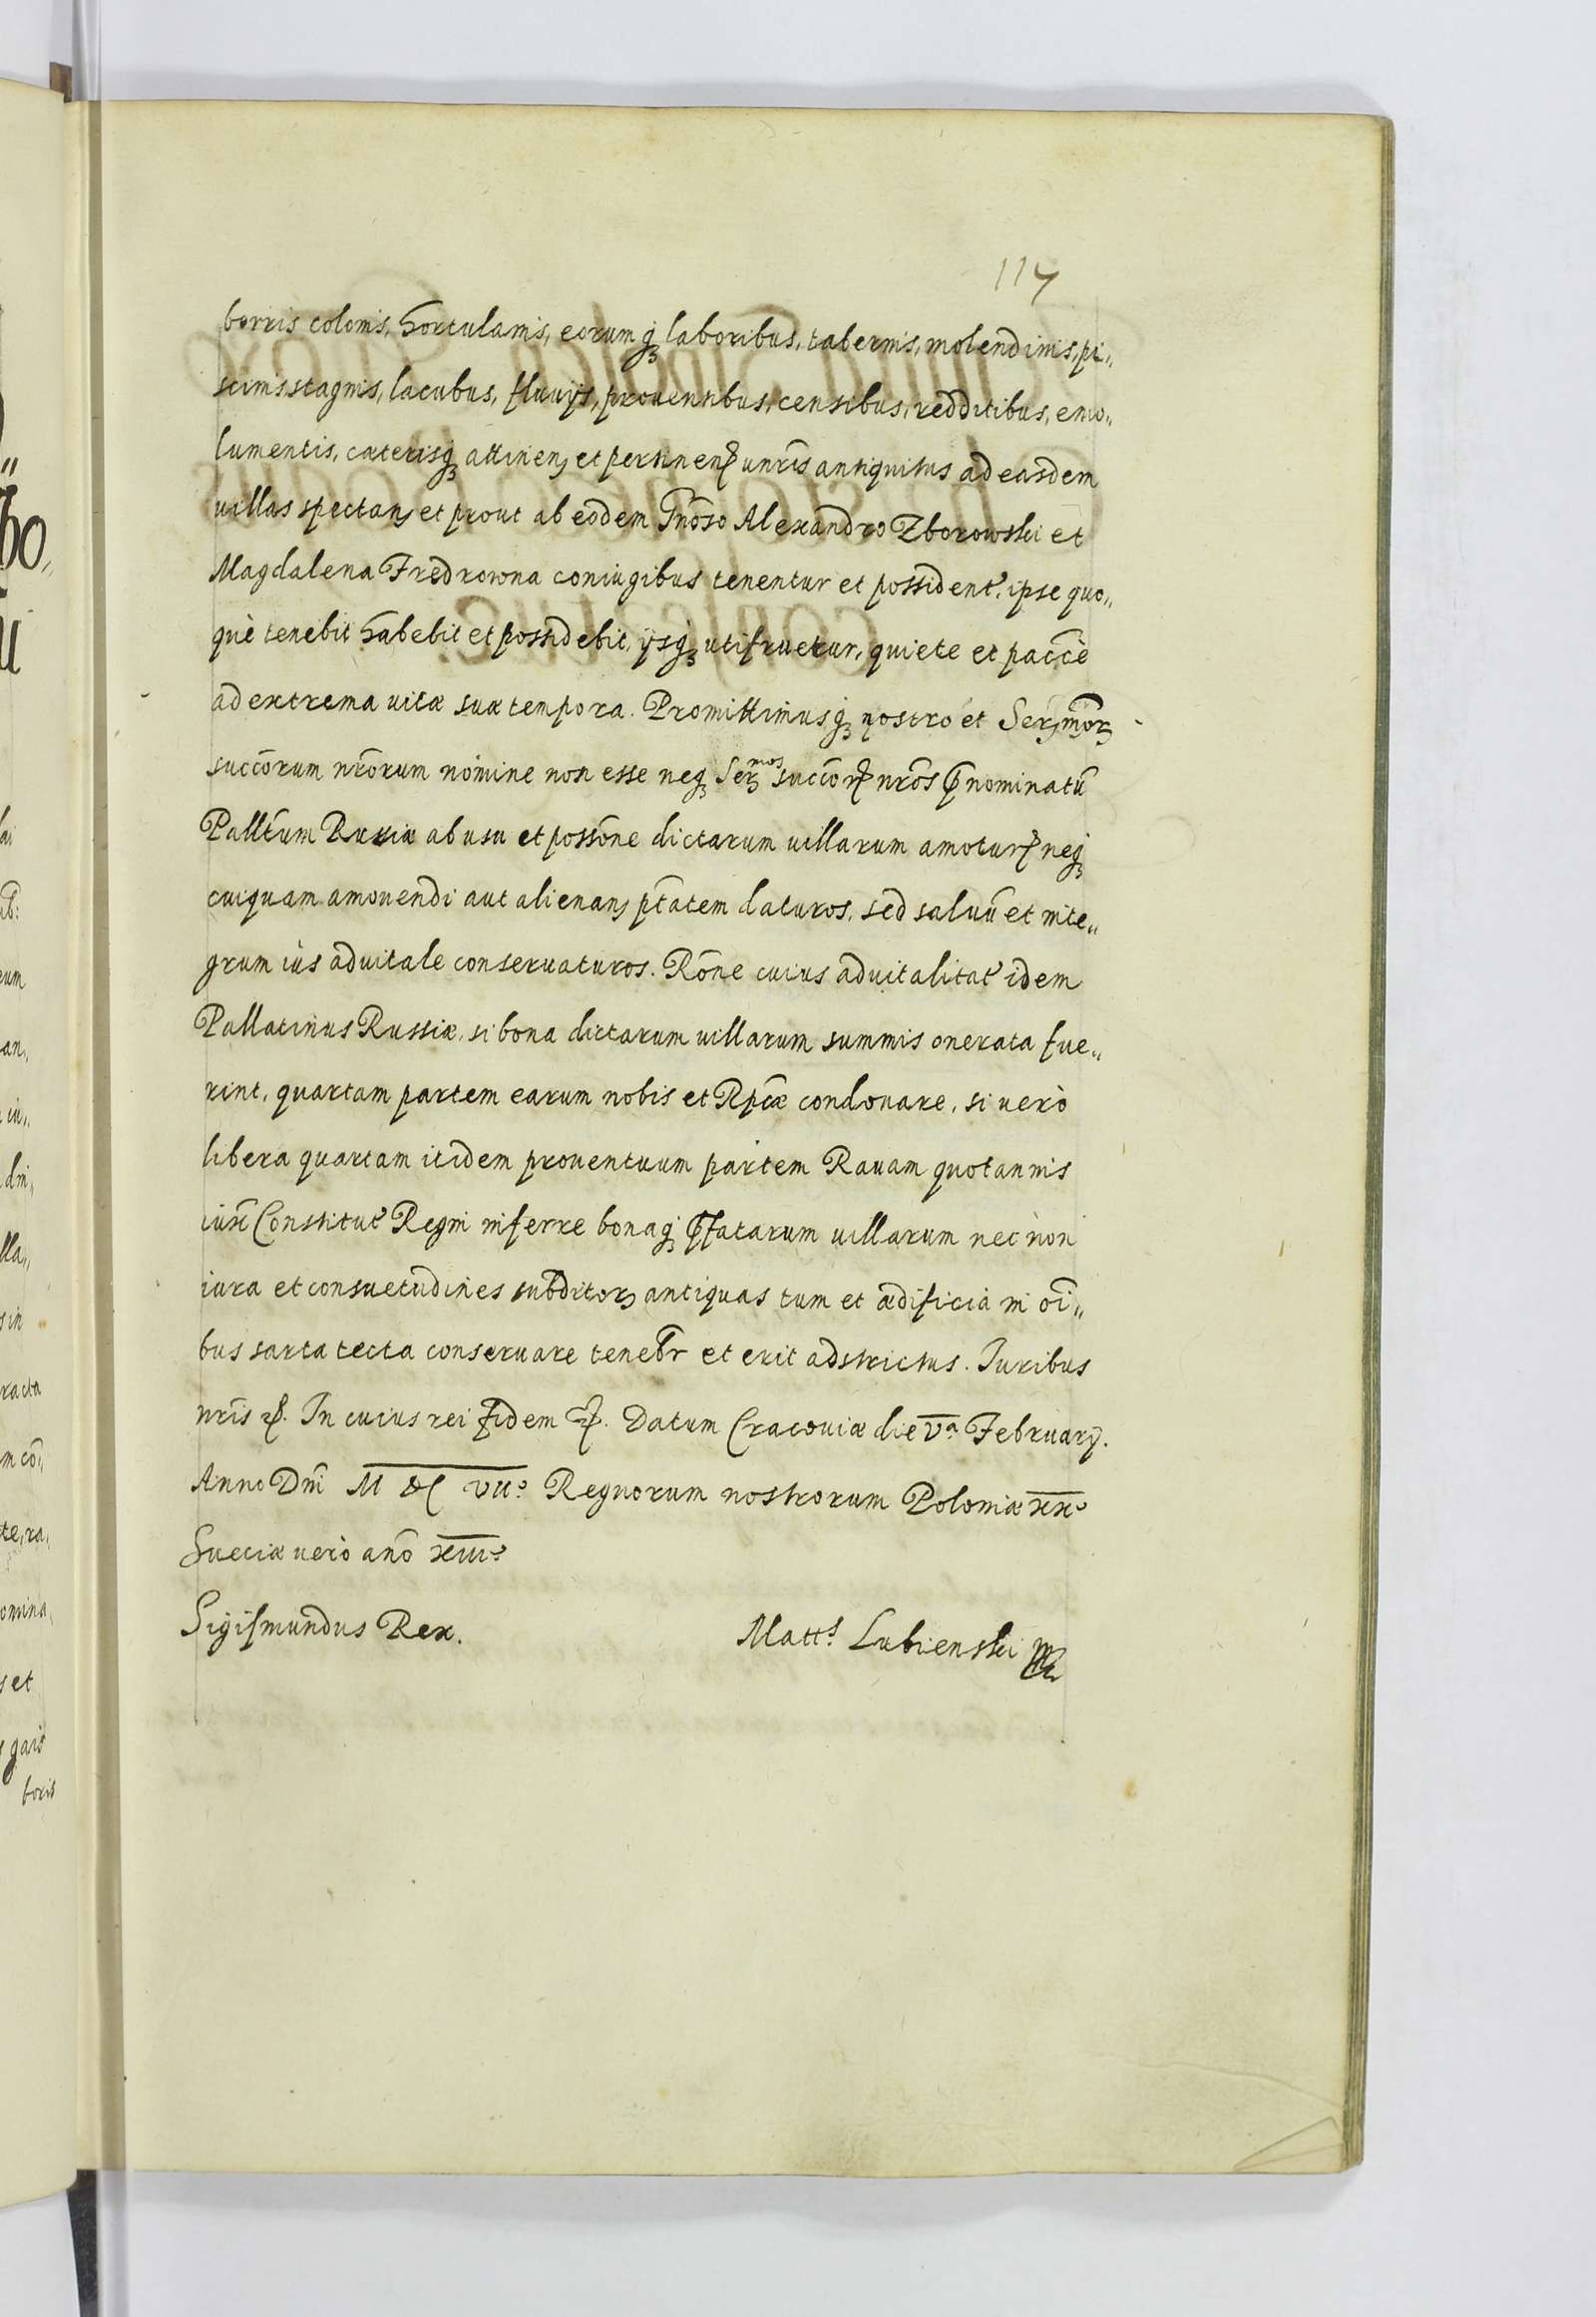 117
borris colonis, hortulanis, eorumq̃ laboribus, tabernis, molendinis, pi„
scinis stagnis, lacubus, fluuijs, prouentibus, censibus, redditibus, emo„
lumentis, cæterisq̃ attinen̄ et pertinen̄ unīs antiquitus ad easdem
uillas spectan̄ et prout ab eodem Gñoso Alexandro Zborowski et
Magdalena Fredrowna coniugibus tenentur et possident̃, ipse quo„
què tenebit habebit et possidebit, ijsq̃ utifruetur, quiete et pacc̃è
ad extrema uitæ suæ tempora. Promittimusq̃ nostro et Ser̃mor̃
succõrum nr̃orum nomine non esse neq̃ Ser̃mos succor̃ nr̃os p̃nominatũ
Pallt̃um Russiæ ab usu et possõne dictarum uillarum amotur̃ neq̃
cuiquam amouendi aut alienan̄ pt̃atem daturos, sed saluũ et inte„
grum ius aduitale conseruaturos. Rõne cuius aduitalitat̃ idem
Pallatinus Russiæ, si bona dictarum uillarum summis onerata fue„
rint, quartam partem earum nobis et Rp̃cæ condonare, si uerò
libera quartam itidem prouentuum partem Rauam quotannis
iux̃ Constitut̃ Regni inferre bonaq̃ p̃fatarum uillarum nec non
iura et consuetudines subditor̃ antiquas tum et ædificia in oĩ„
bus sarta tecta conseruare teneb̃r et erit adstrictus. Iuribus
nr̃is &. In cuius rei fidem &. Datum Cracouiæ die Vᵃ Februarij.
Anno Dñi M DC VIIº Regnorum nostrorum Poloniæ xxº
Sueciæ uerò anõ xiiiº
Sigismundus Rex.
Mattˢ Lubienski
boris